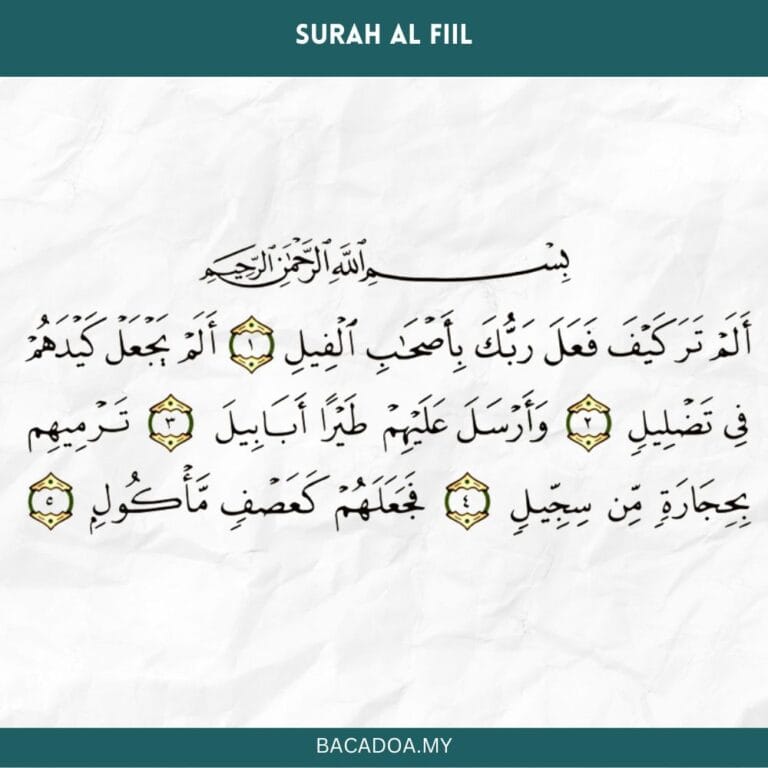 SURAH AL FIIL
بِسْمِ ٱللَّهِ ٱلرَّحْمَٰنِ ٱلرَّحِيمِ
أَلَمْ تَرَ كَيْفَ فَعَلَ رَبُّكَ بِأَصْحَٰبِ ٱلْفِيلِ ١ أَلَمْ يَجْعَلْ كَيْدَهُمْ
فِى تَضْلِيلٍ ٢ وَأَرْسَلَ عَلَيْهِمْ طَيْرًا أَبَابِيلَ ٣ تَرْمِيهِم
بِحِجَارَةٍ مِّن سِجِّيلٍ ٤ فَجَعَلَهُمْ كَعَصْفٍ مَّأْكُولٍۭ ٥
BACADOA.MY